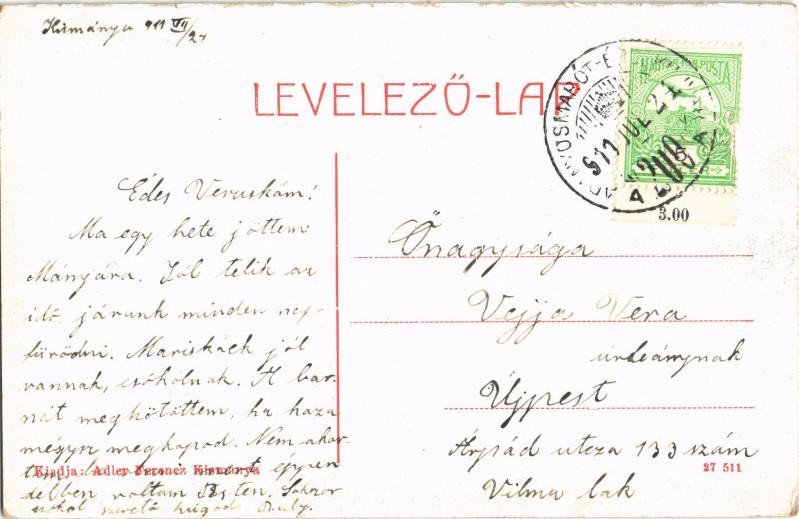 Kismánya 911 VII/24
LEVELEZŐ-LAP
MAGYAR KIR. POSTA
911 JUL 24
5
3.00
Édes Veruskám!
Ma egy hete jöttem
Mányára. Jól telik az
idő járunk minden nap
fürödni. Mariskáék jól
vannak, csókolnak. A bar-
nát megkötöttem, ha haza
mégysz megkapod. Nem akar-
éppen
debben voltam Pesten. Sokszor
csókol szerető húgod
Őnagysága
Vejja Vera
úrleánynak
Újpest
Árpád utcza 133 szám
Vilma lak
Kiadja: Adler Ferencz Kismánya
27 511